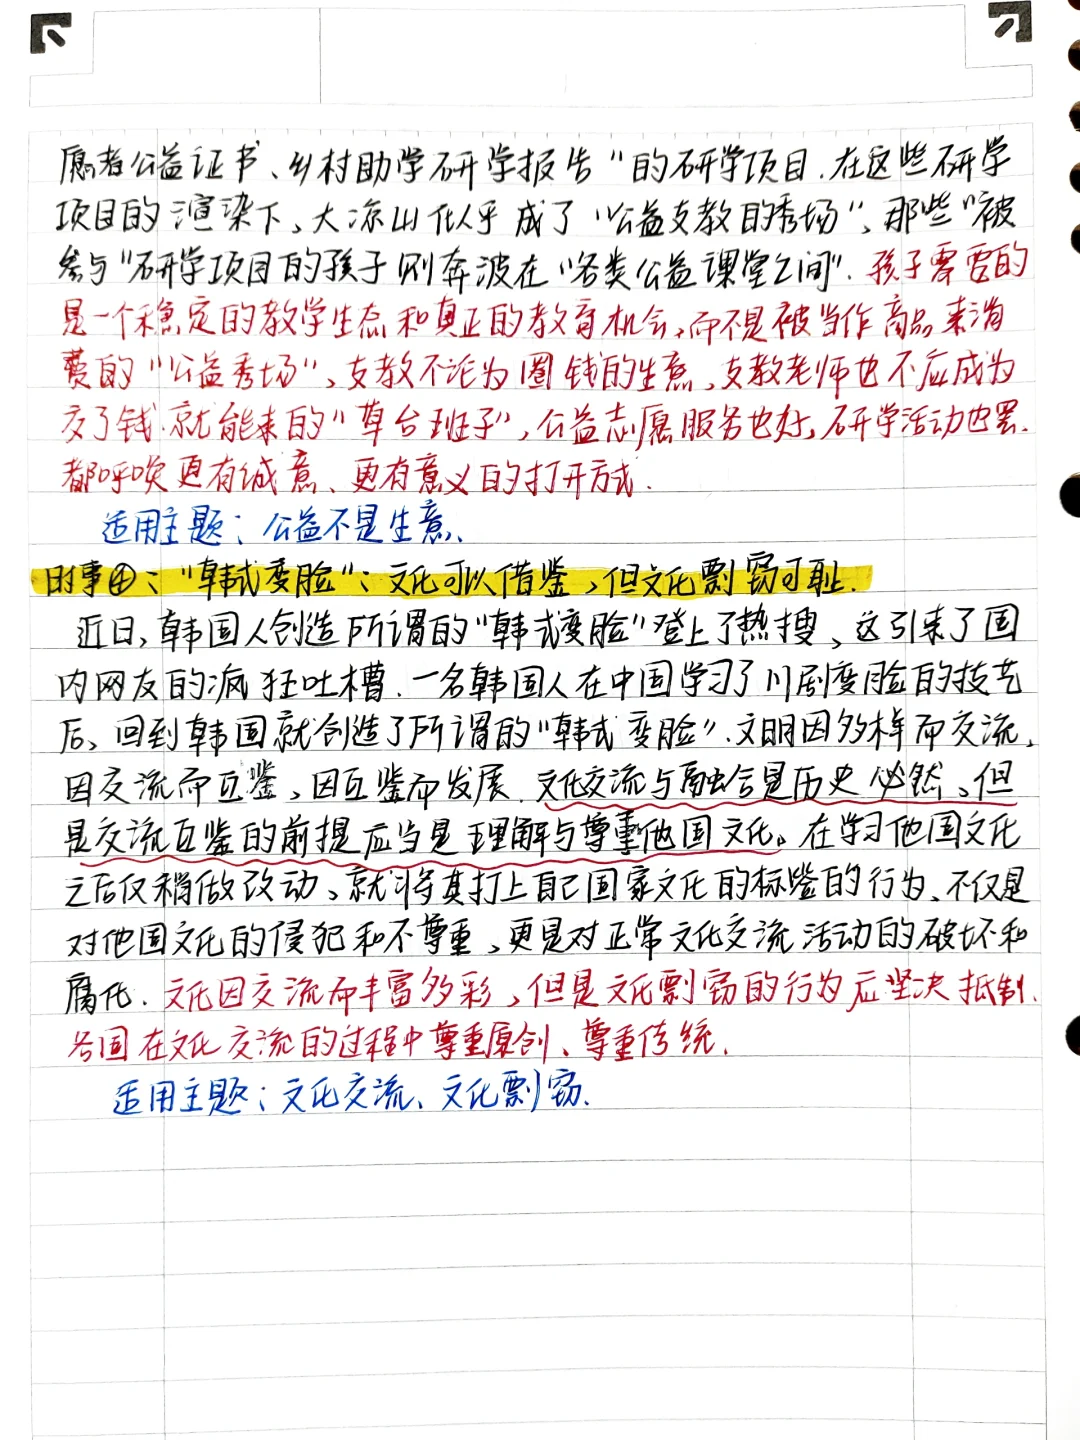 愿者公益证书、乡村助学研学报告"的研学项目.在这些研学
项目的渲染下、大凉山似乎成了"公益支教的秀场",那些"被
参与"研学项目的孩子则奔波在"各类公益课堂之间".孩子需要的
是一个稳定的教学生态和真正的教育机会,而不是被当作商品来消
费的"公益秀场",支教不沦为圈钱的生意、支教老师也不应成为
交了钱就能来的"草台班子",公益志愿服务也好,研学活动也罢.
都呼唤更有诚意、更有意义的打开方式.
适用主题:公益不是生意.
时事④:"韩式变脸":文化可以借鉴,但文化剽窃可耻.
近日,韩国人创造所谓的"韩式变脸"登上了热搜,这引来了国
内网友的疯狂吐槽.一名韩国人在中国学习了川剧变脸的技艺
后,回到韩国就创造了所谓的"韩式变脸".文明因多样而交流,
因交流而互鉴,因互鉴而发展.文化交流与融合是历史必然、但
是交流互鉴的前提应当是理解与尊重他国文化。在学习他国文化
之后仅稍做改动、就将其打上自己国家文化的标签的行为、不仅是
对他国文化的侵犯和不尊重,更是对正常文化交流活动的破坏和
腐化.文化因交流而丰富多彩,但是文化剽窃的行为应坚决抵制.
各国在文化交流的过程中尊重原创、尊重传统.
适用主题:文化交流、文化剽窃.